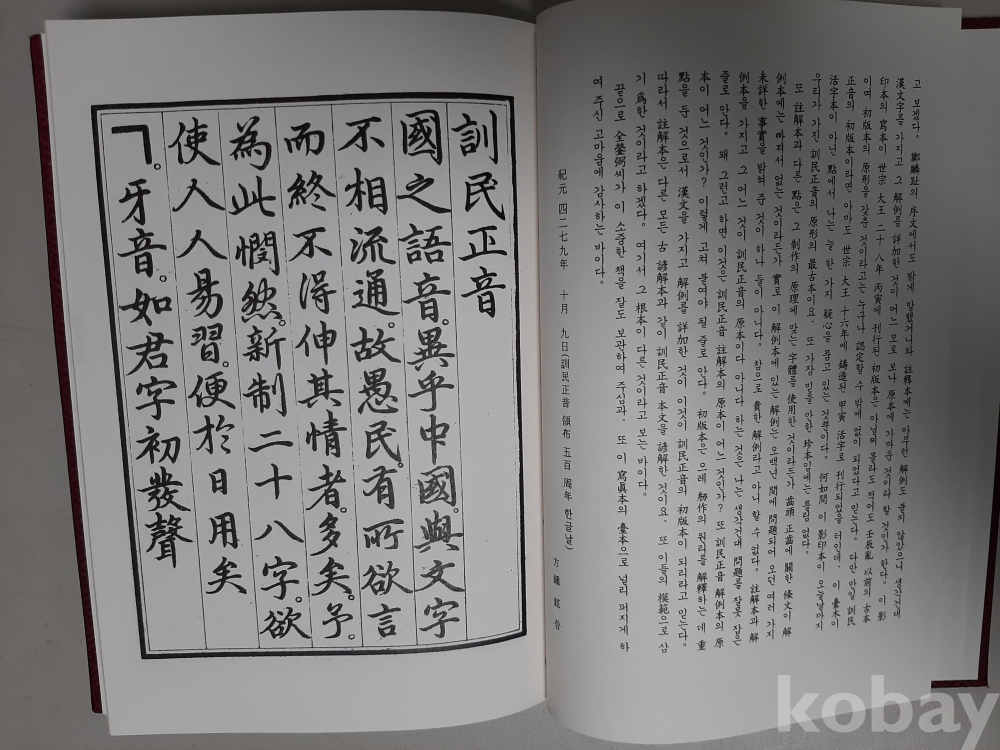 고 보겠다. 鄭麟趾의 序文에서도 밝게 말했거니와 註釋本에는 아무런 解例도 붙지 않았으니 생각건대
漢文字를 가지고 그 解例를 詳加한 것이 어느 모로 보나 原本에 가까운 것이라 할 것인가 한다. 이 影
印本의 寫本이 世宗 大王 二十八年 丙寅에 刊行된 初版本은 아닐지 몰라도 적어도 壬辰亂 以前의 古本
이며 初版本의 原形을 갖춘 것이라고는 누구나 認定할 수 밖에 없이 되었다고 믿는다. 다만 만일 訓民
正音의 初版本이라면 아마도 世宗 大王 十六年에 鑄造된 甲寅 活字로 刊行되었을 터인데, 이 臺本이
活字本이 아닌 點에서 나는 늘 한 가지 疑心을 품고 있는 것뿐이다. 何如間 이 影印本이 오늘날까지
우리가 가진 訓民正音의 原形의 最古本이요, 또 가장 믿을 만한 珍本임에는 틀림 없다.
또 註解本과 다른 點은 그 制作의 原理에 맞는 字體를 使用한 것이라든가 齒頭 正齒에 關한 條文이 解
例本에는 빠져서 없는 것이라든가 實로 이 解例本에 있는 解例는 오백년 間에 問題되어 오던 여러 가지
未詳한 事實을 밝혀 준 것이 하나 둘이 아니다. 참으로 貴한 解例라고 아니 할 수 없다. 註解本과 解
例本을 가지고 그 어느 것이 訓民正音의 原本이다 아니다 하는 것은 나는 생각건대 問題를 잘못 잡은
줄로 안다. 왜 그런고 하면 이것은 訓民正音 註解本의 原本이 어느 것인가? 또 訓民正音 解例本의 原
本이 어느 것인가? 이렇게 고쳐 불여야 될 줄로 안다. 初版本은 으레 制作의 原理를 解釋하는 데 重
點을 둔 것으로서 漢文을 가지고 解例를 詳加한 것이 이것이 訓民正音의 初版本이 되리라고 믿는다.
따라서 註解本은 다른 모든 古 諺解本과 같이 訓民正音 本文을 諺解한 것이요, 또 이들의 模範으로 삼
기 爲한 것이라고 하겠다. 여기서 그 根本이 다른 것이라고 보는 바이다.
끝으로 全鎣弼씨가 이 소중한 책을 잘도 보관하여 주심과, 또 이 寫眞本의 臺本으로 널리 퍼지게 하
여 주신 고마움에 감사하는 바이다.
紀元 四二七九年 十月 九日(訓民正音 頒布 五百 周年 한글날)
方鍾鉉 씀
訓民正音
國之語音。異乎中國。與文字
不相流通。故愚民。有所欲言
而終不得伸其情者。多矣。予。
為此憫然。新制二十八字。欲
使人人易習。便於日用矣
ㄱ。牙音。如君字初發聲
kobay